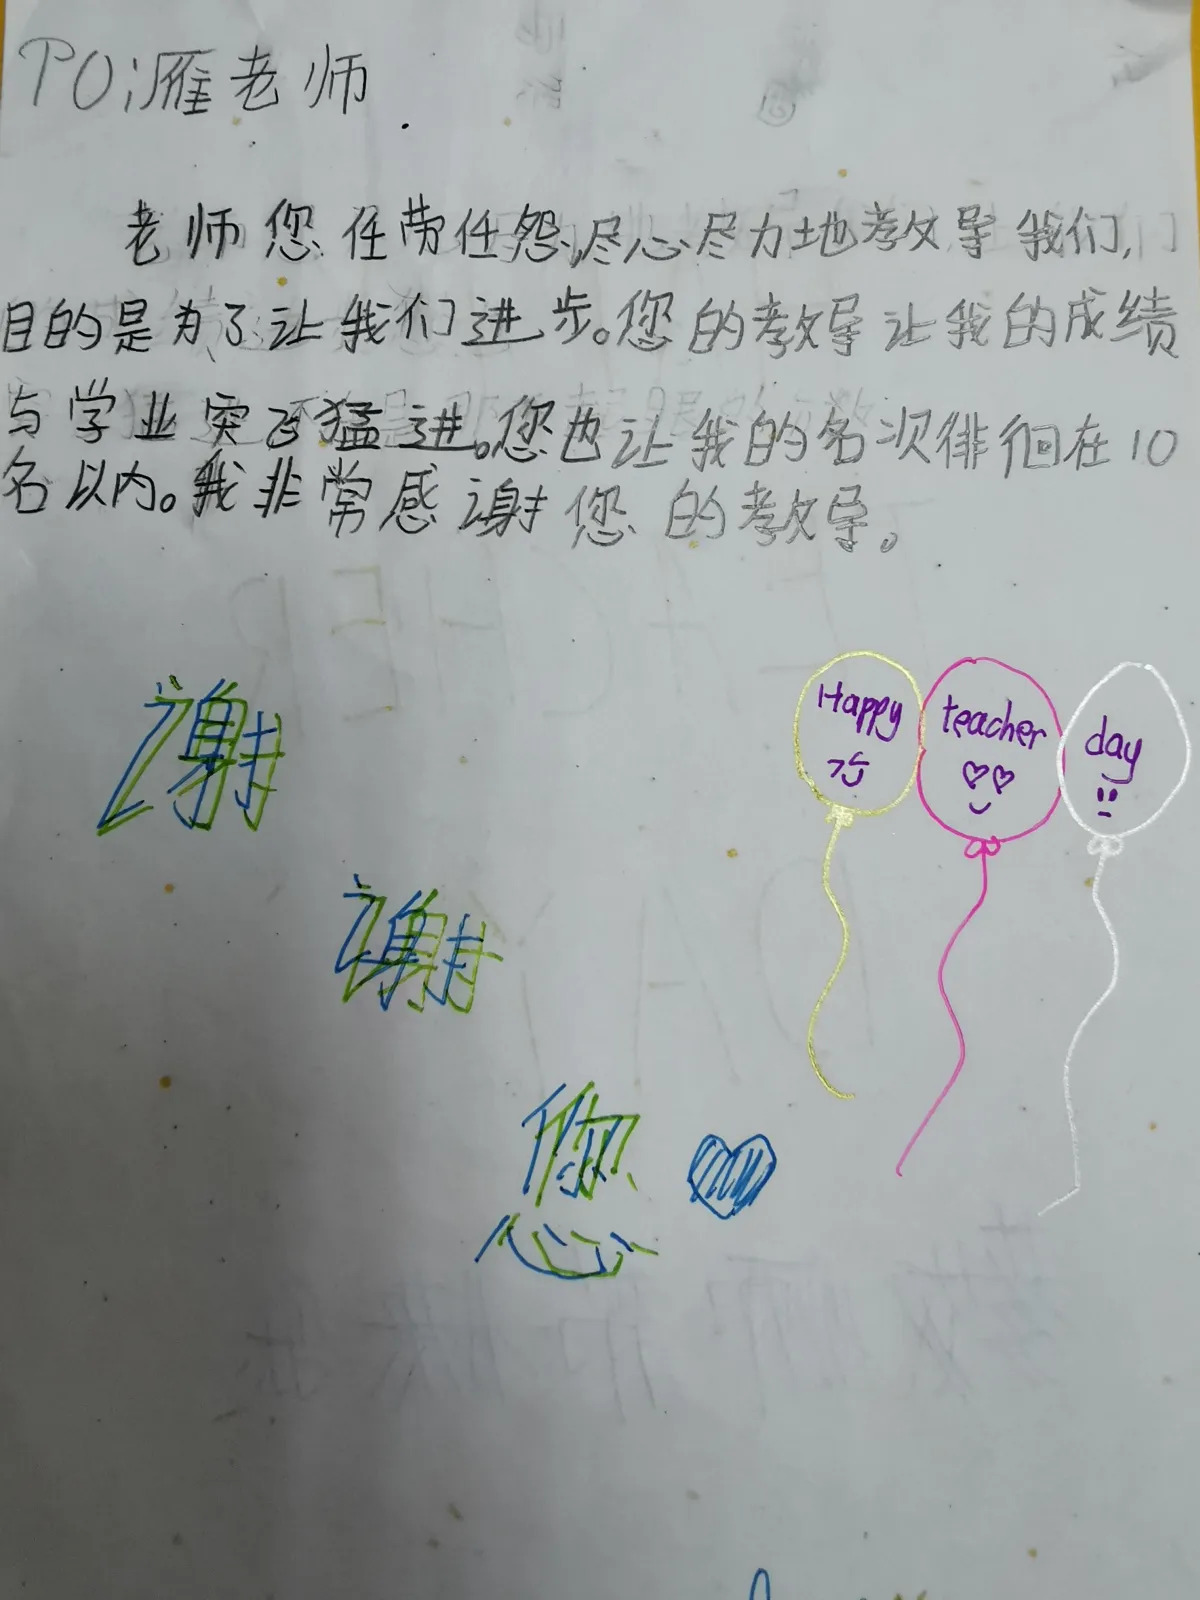 TO:雁老师
老师您任劳任怨,尽心尽力地教导我们,
目的是为了让我们进步。您的教导让我的成绩
与学业突飞猛进。您也让我的名次徘徊在10
名以内。我非常感谢您的教导。
谢
谢
您
Happy
teacher
day